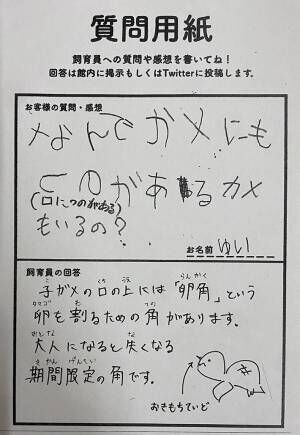 質問用紙
飼育員への質問や感想を書いてね！
回答は館内に掲示もしくはTwitterに投稿します。
お客様の質問・感想
なんでカメにも
つのがあるカメ
(口につのがある)
もいるの？
お名前 ゆい
飼育員の回答
子ガメの口の上には「卵角」という
卵を割るための角があります。
大人になると失くなる
期間限定の角です。
おきもちていど